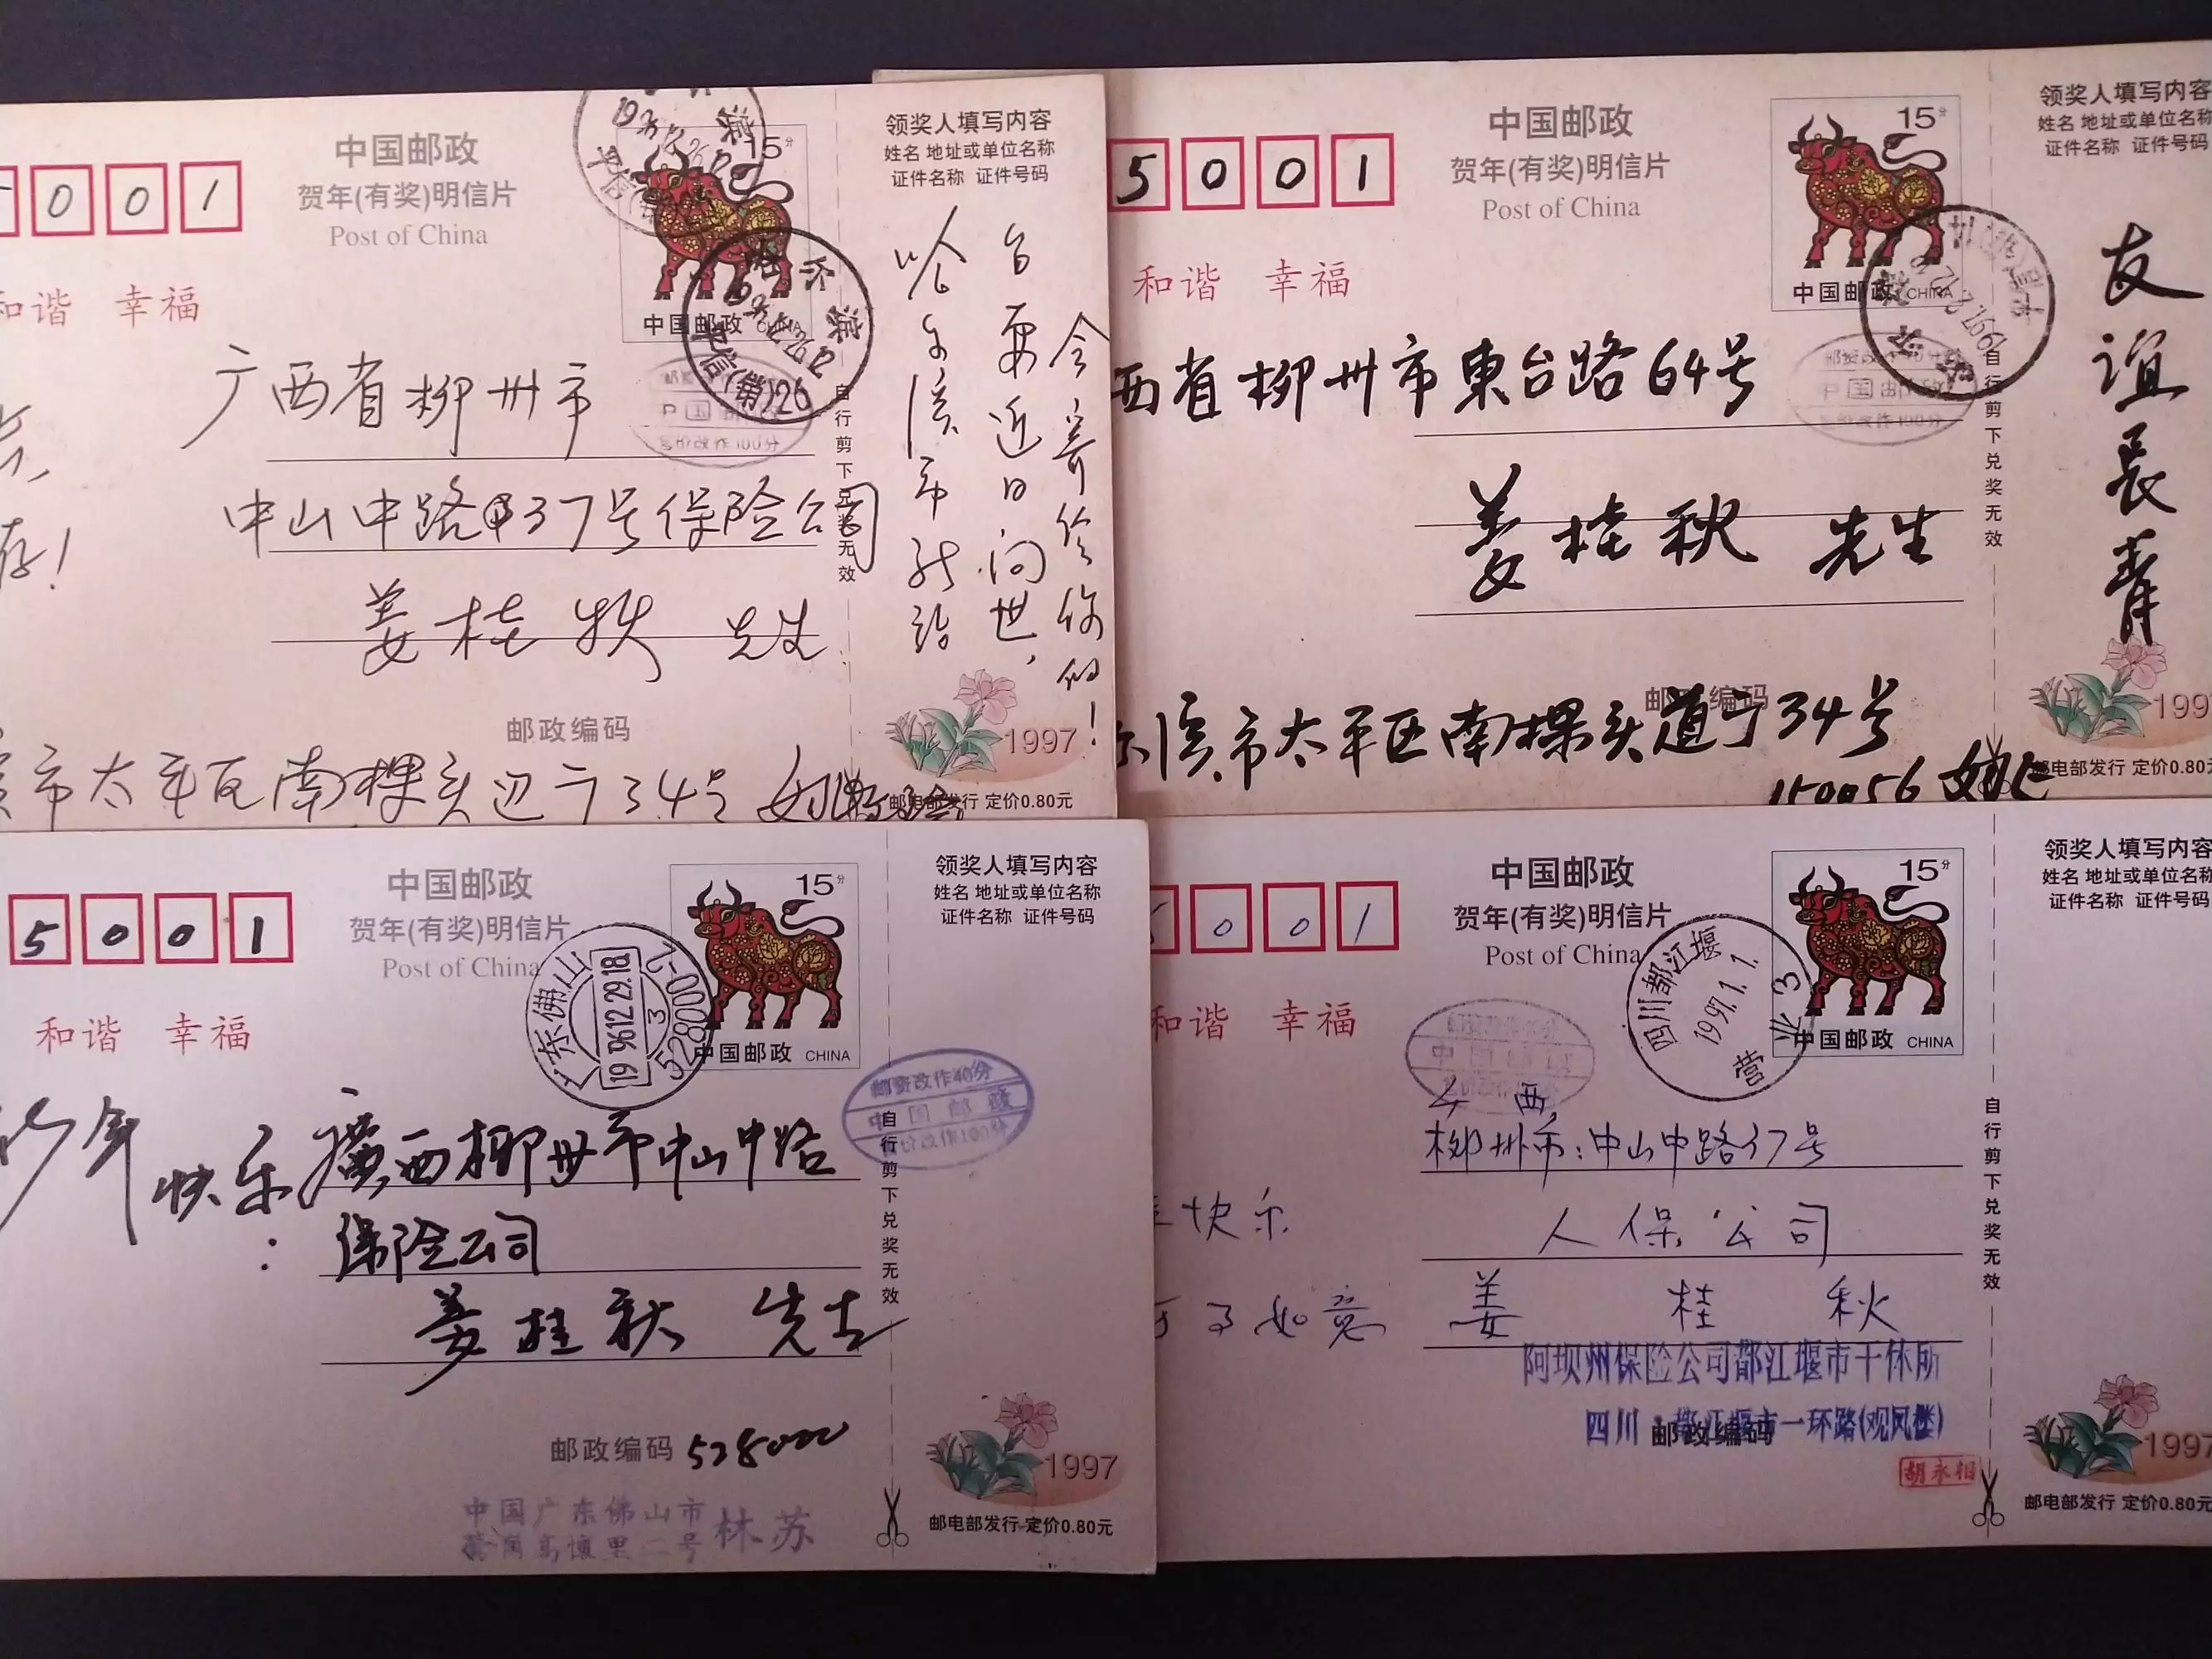 中国邮政
贺年(有奖)明信片
Post of China
0 0 1
和谐 幸福
15分
中国邮政 CHINA
哈尔滨
广西省柳州市
中山中路37号保险公司
姜桂秋 先生
邮政编码
市太平区南棵头道
34号
自行剪下兑奖无效
领奖人填写内容
姓名 地址或单位名称
证件名称 证件号码
近日问世,
今寄给你的!
1997
邮电部发行 定价0.80元
中国邮政
贺年(有奖)明信片
Post of China
5 0 0 1
和谐 幸福
15分
中国邮政 CHINA
西省柳州市東台路64号
姜桂秋 先生
邮政编码
滨市太平区南棵头道
34号
150056
自行剪下兑奖无效
领奖人填写内容
姓名 地址或单位名称
证件名称 证件号码
友谊长青
199
邮电部发行 定价0.80元
中国邮政
贺年(有奖)明信片
Post of China
5 0 0 1
和谐 幸福
15分
中国邮政 CHINA
广东佛山
1996.12.29.18
3
528000-1
邮资改作40分
中国邮政
售价改作100分
年快乐
廣西柳州市中山中路
保险公司
姜桂秋 先生
邮政编码 528000
中国广东佛山市
林苏
自行剪下兑奖无效
领奖人填写内容
姓名 地址或单位名称
证件名称 证件号码
1997
邮电部发行 定价0.80元
中国邮政
贺年(有奖)明信片
Post of China
0 0 1
和谐 幸福
15分
中国邮政 CHINA
四川都江堰
1997.1.1.
营业 3
广西
柳州市:中山中路37号
人保公司
姜桂秋
快乐
如意
阿坝州保险公司都江堰市干休所
四川 都江堰市一环路(观凤楼)
邮政编码
胡永相
自行剪下兑奖无效
领奖人填写内容
姓名 地址或单位名称
证件名称 证件号码
1997
邮电部发行 定价0.80元